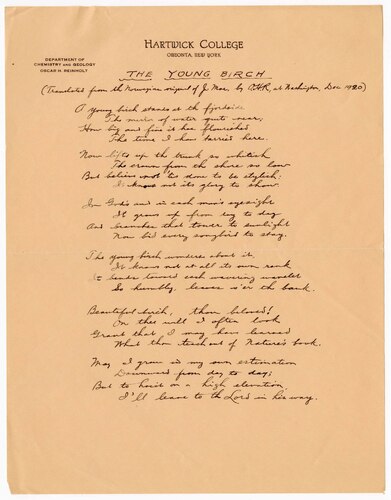 HARTWICK COLLEGE
ONEONTA, NEW YORK
DEPARTMENT OF
CHEMISTRY AND GEOLOGY
OSCAR H. REINHOLT
THE YOUNG BIRCH
(Translated from the Norwegian original of J. Moe, by O.H.R., at Washington, Dec 1920)
A young birch stands at the fjordside
The mirror of water quite near;
How big and fine it has flourished
The time I how tarried here.
Now lifts up the trunk so whitish
The crown from the shore so low
But believe not 'tis done to be stylish:
It knows not its glory to show.
In God's and in each man's eyesight
It grows up from day to day
And branches that tower to sunlight
Now bid every songbird to stay.
The young birch wonders about it,
It knows not at all its own rank
It bends toward each wavering wavelet
So humbly, leaves o'er the bank.
Beautiful birch, thou beloved!
On thee will I often look
Grant that I may have learned
What thou teach out of Nature's book.
May I grow in my own estimation
Downward from day to day;
But to hoist on a high elevation
I'll leave to th Lord in his way.